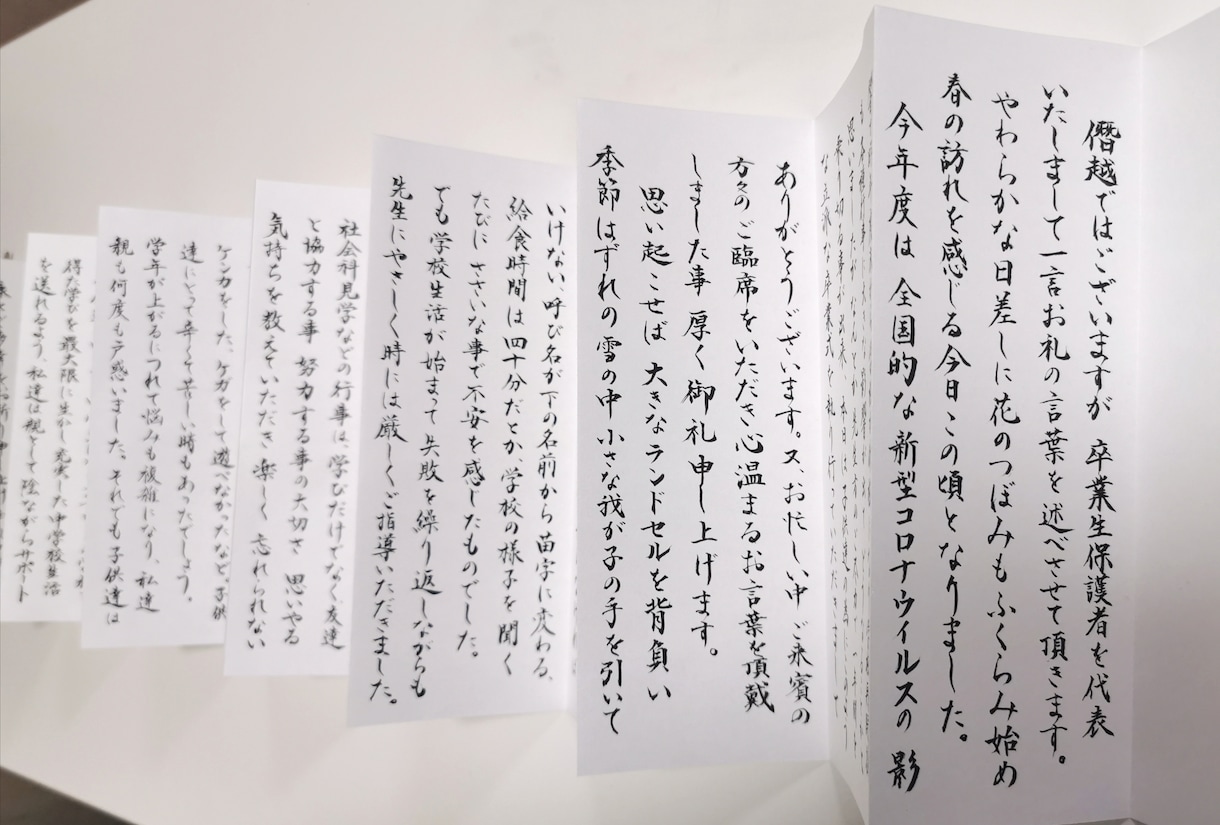 僭越ではございますが 卒業生保護者を代表
いたしまして一言お礼の言葉を述べさせて頂きます。
やわらかな日差しに花のつぼみもふくらみ始め
春の訪れを感じる今日この頃となりました。
今年度は 全国的な新型コロナウイルスの影
な立派な卒業式を執り行っていただきまし
ありがとうございます。又、お忙しい中 ご来賓の
方々のご臨席をいただき心温まるお言葉を頂戴
しました事 厚く御礼申し上げます。
思い起こせば 大きなランドセルを背負い
季節はずれの雪の中 小さな我が子の手を引いて
いけない、呼び名が下の名前から苗字に変わる、
給食時間は四十分だとか、学校の様子を聞く
たびに ささいな事で不安を感じたものでした。
でも 学校生活が始まって 失敗を繰り返しながらも
先生にやさしく時には厳しくご指導いただきました。
社会科見学などの行事は、学びだけでなく友達
と協力する事 努力する事の大切さ 思いやる
気持ちを教えていただき楽しく 忘れられない
ケンカをした、ケガをして遊べなかったなど。子供
達にとって辛くて苦しい時もあったでしょう。
学年が上がるにつれて悩みも複雑になり、私達
親も何度も戸惑いました。それでも子供達は
得た学びを最大限に生かし充実した中学校生活
を送れるよう、私達は親として陰ながらサポート